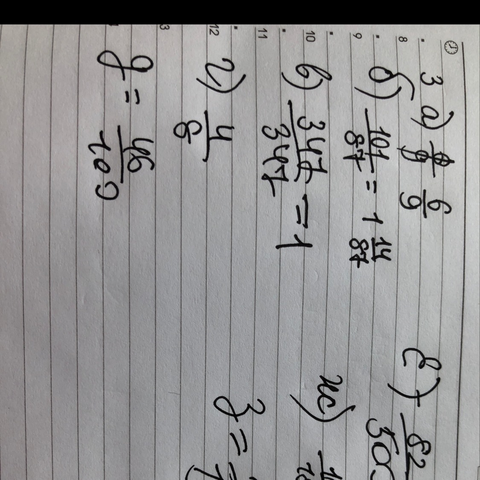 3 а) 6/9
б) 101/87 = 1 14/87
в) 347/347 = 1
г) 4/8
g = 46/100
е) 82
ж)
з =
8
9
10
11
12